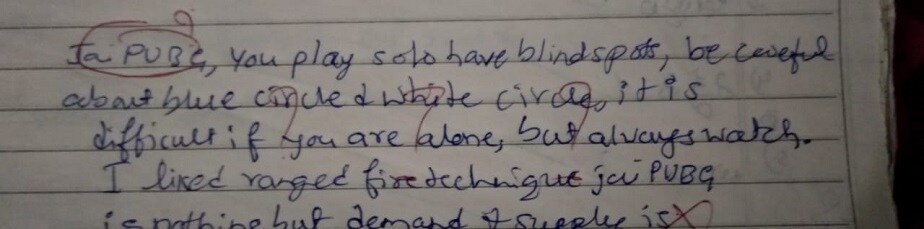 Jai PUBG, you play solo have blindspots, be careful
about blue circle & white circle, it is
difficult if you are alone, but always watch.
I liked ranged fire technique jai PUBG
is nothing but demand & supply is